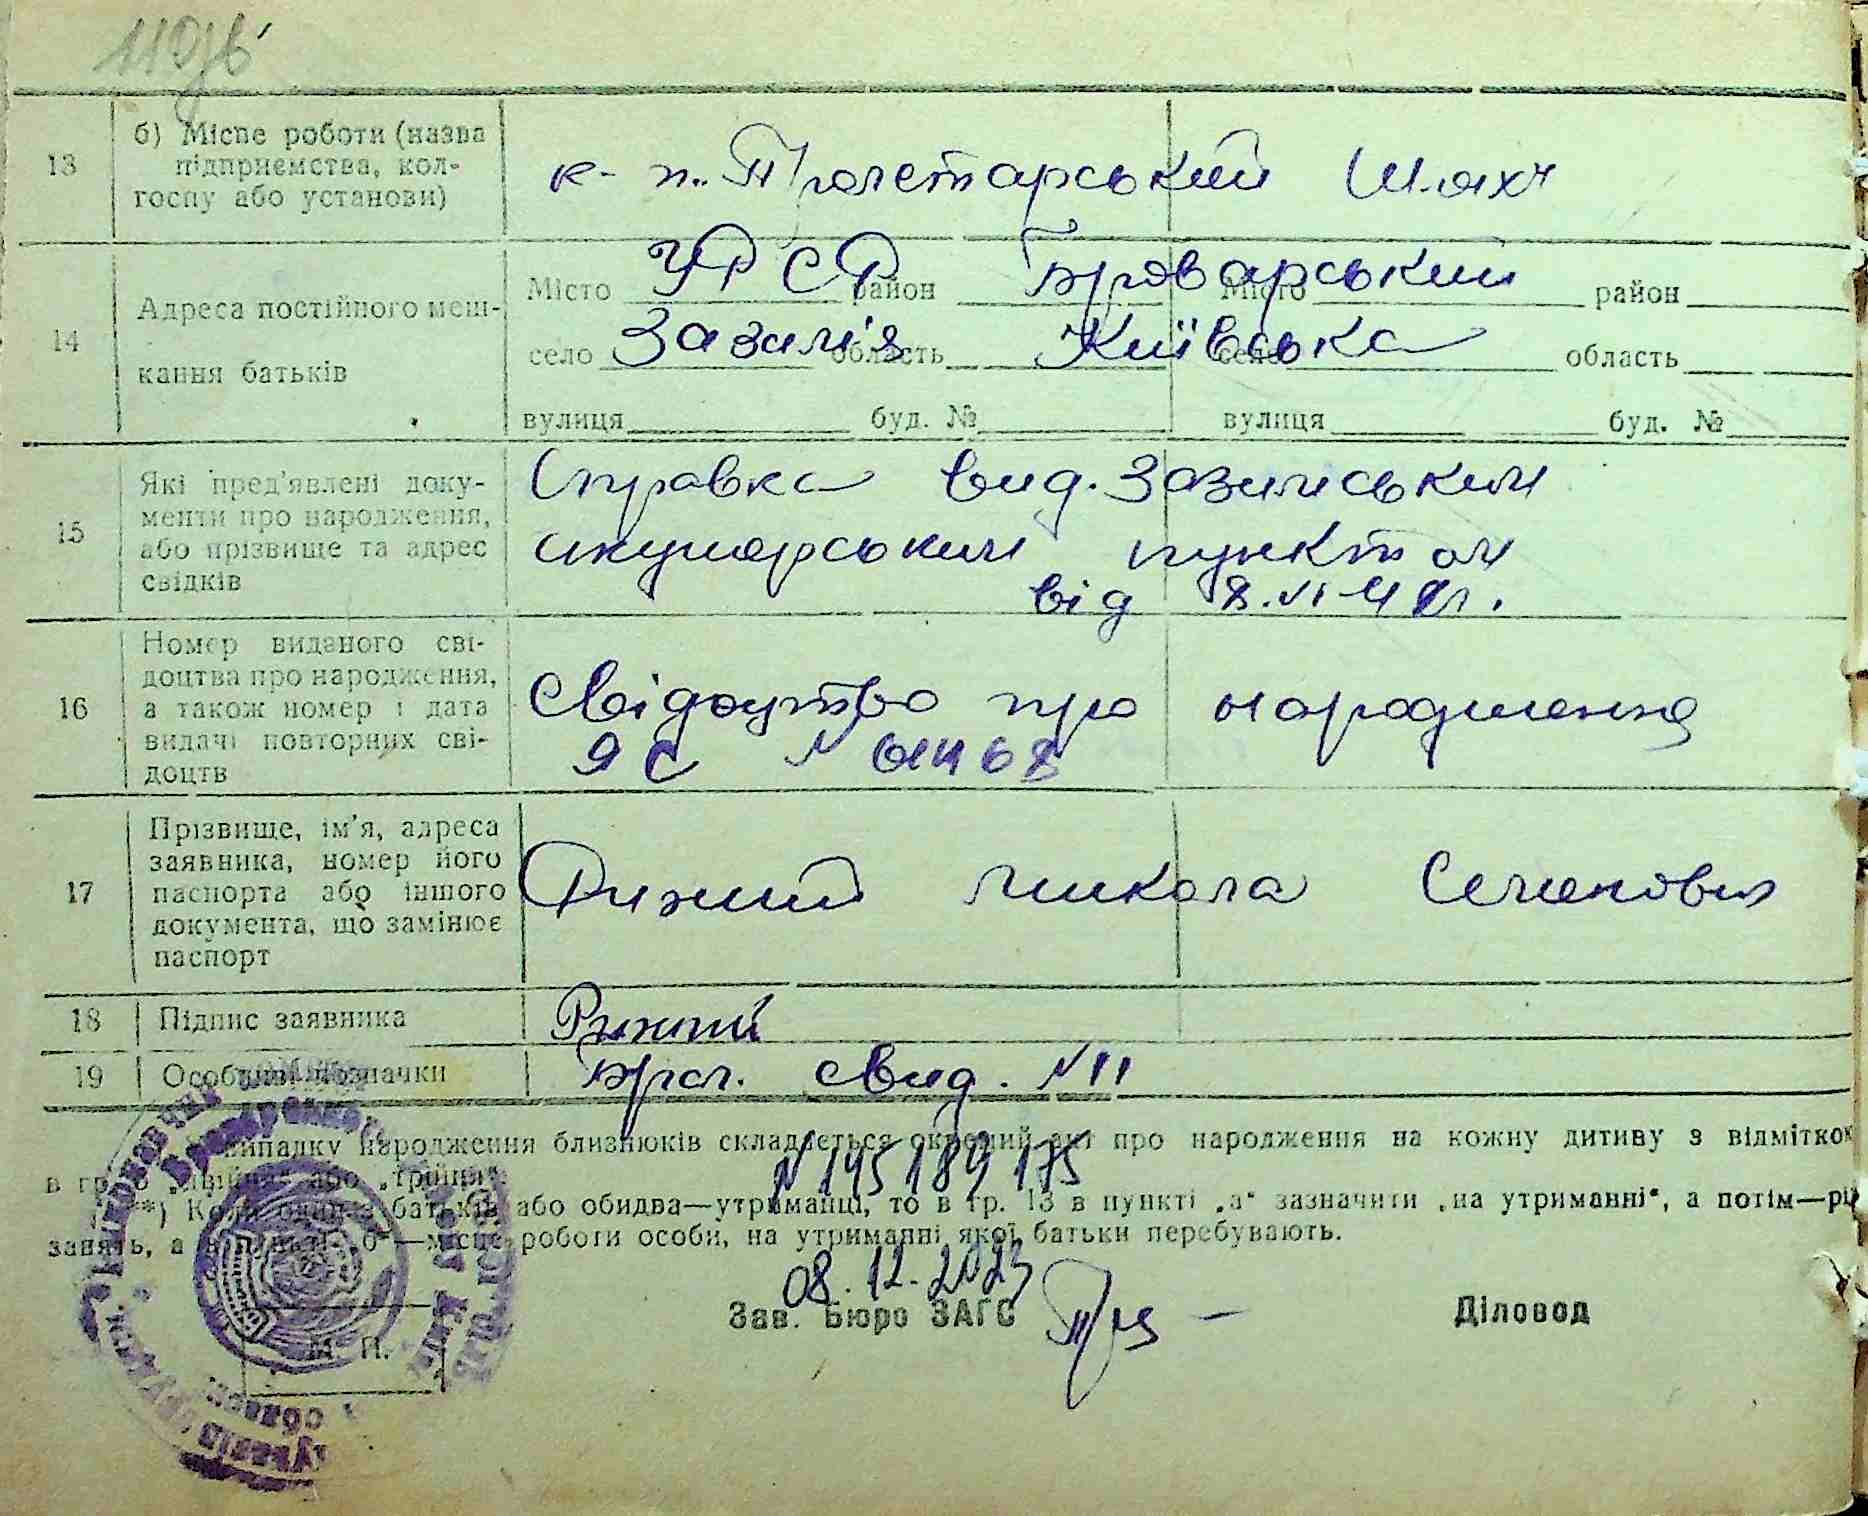 119зв
13 б) Місце роботи (назва підприємства, колгоспу або установи) к-п. Пролетарський Шлях
14 Адреса постійного мешкання батьків
Місто УРСР район Броварський Місто район
село Зазим'я область Київська село область
вулиця буд. № вулиця буд. №
15 Які пред'явлені документи про народження, або прізвище та адрес свідків
Справка вид. Зазимським
акушерським пунктом
від 8.VI-48 г.
16 Номер виданого свідоцтва про народження, а також номер і дата видачі повторних свідоцтв
Свідоцтво про народження
ЯС N
17 Прізвище, ім'я, адреса заявника, номер його паспорта або іншого документа, що замінює паспорт
Рижий Микола Семенович
18 Підпис заявника Рижий
19 Особливі позначки брсл. свид. N II
N 145189175
випадку народження близнюків складається окремий акт про народження на кожну дитину з відміткою
в гр. 6 „двійня" або „трійня".
**) Коли один з батьків або обидва—утриманці, то в гр. 13 в пункті „а" зазначити „на утриманні", а потім—рід
занять, а в пункті „б"—місце роботи особи, на утриманні якої батьки перебувають.
08.12.2023
Зав. Бюро ЗАГС Діловод
М. П.